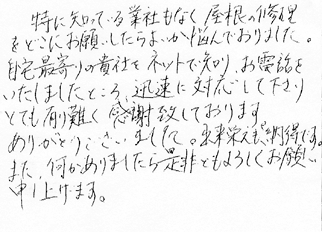 特に知っている業社もなく屋根の修理
をどこにお願いしたらよいか悩んでおりました。
自宅最寄りの貴社をネットで知り、お電話を
いたしましたところ、迅速に対応して下さり
とても有り難く感謝致しております
ありがとうございました。出来栄えも納得です。
また、何かありましたら是非ともよろしくお願い
申し上げます。